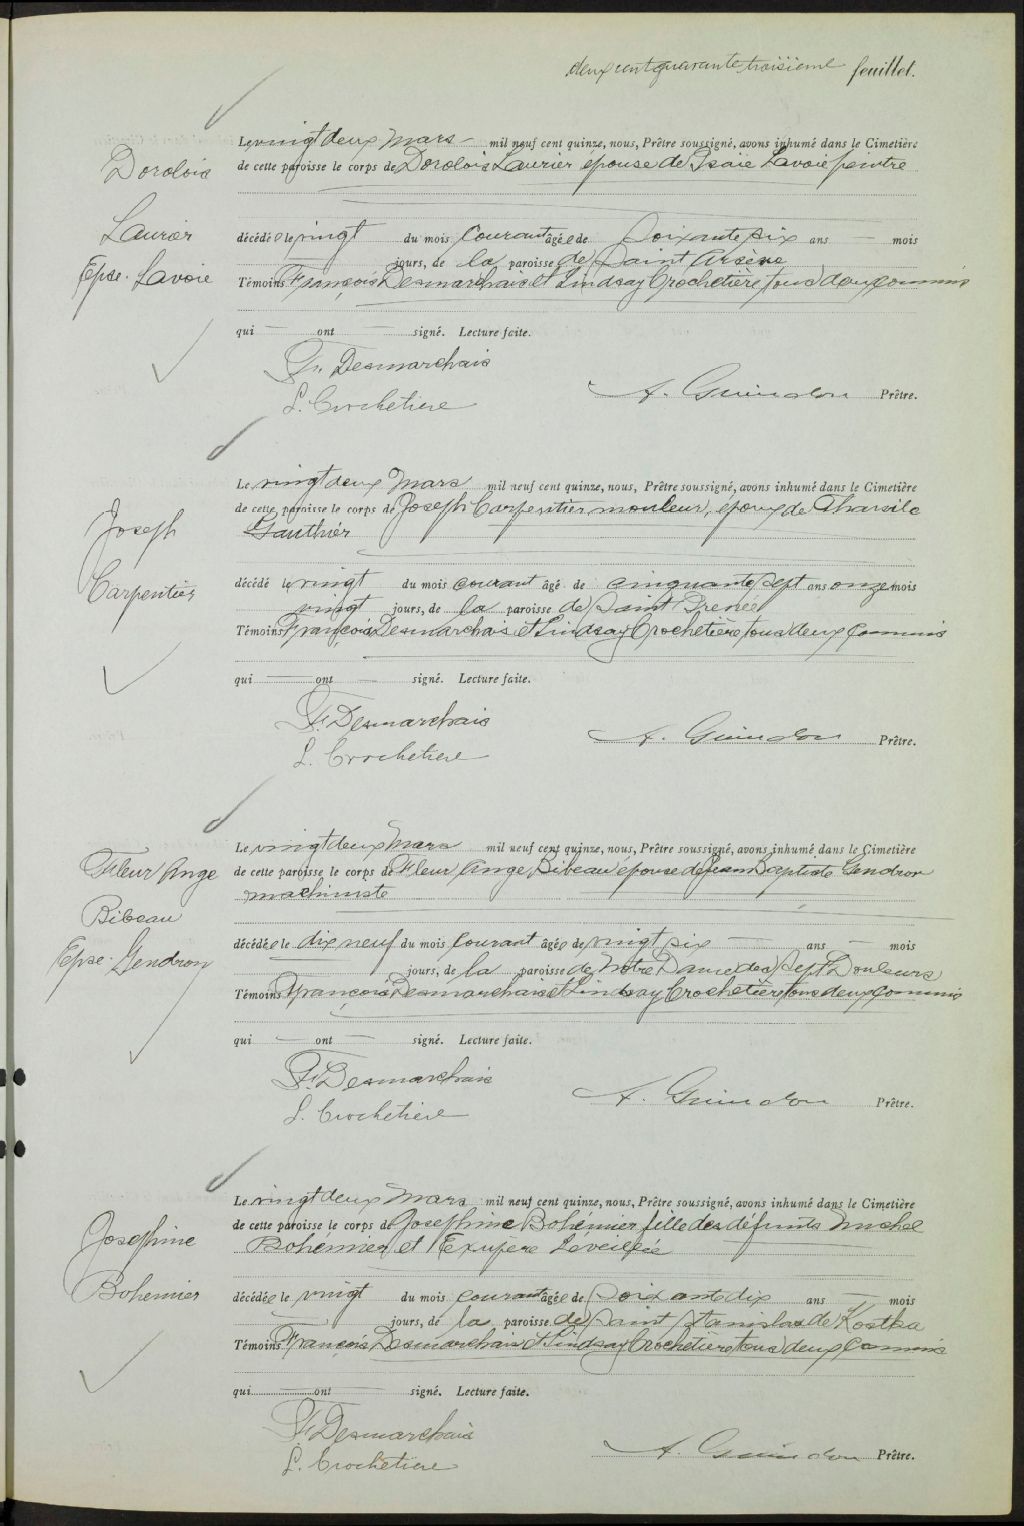 deux cent quarante troisième feuillet.
Dorolois
Laurier
Epse. Lavoie
Le vingt deux Mars mil neuf cent quinze, nous, Prêtre soussigné, avons inhumé dans le Cimetière
de cette paroisse le corps de Dorolois Laurier épouse de Isaïe Lavoie peintre
décédée le vingt du mois courant âgée de Soixante six ans — mois
— jours, de la paroisse de Saint Arsène
Témoins François Desmarchais et Lindsay Crochetière tous deux commis
qui — ont — signé. Lecture faite.
Fr. Desmarchais
L. Crochetiere
A. Guindon Prêtre.
Joseph
Carpentier
Le vingt deux Mars mil neuf cent quinze, nous, Prêtre soussigné, avons inhumé dans le Cimetière
de cette paroisse le corps de Joseph Carpentier mouleur, époux de Tharsile
Gauthier
décédé le vingt du mois courant âgé de cinquante sept ans onze mois
vingt jours, de la paroisse de Saint Irenée
Témoins François Desmarchais et Lindsay Crochetière tous deux commis
qui — ont — signé. Lecture faite.
F. Desmarchais
L. Crochetiere
A. Guindon Prêtre.
Fleur Ange
Bibeau
Epse. Gendron
Le vingt deux Mars mil neuf cent quinze, nous, Prêtre soussigné, avons inhumé dans le Cimetière
de cette paroisse le corps de Fleur Ange Bibeau épouse de Jean Baptiste Gendron
machiniste
décédée le dix neuf du mois courant âgée de vingt six — ans — mois
jours, de la paroisse de Notre Dame des Sept Douleurs
Témoins François Desmarchais et Lindsay Crochetière tous deux commis
qui — ont — signé. Lecture faite.
F. Desmarchais
L. Crochetiere
A. Guindon Prêtre.
Josephine
Bohemier
Le vingt deux Mars mil neuf cent quinze, nous, Prêtre soussigné, avons inhumé dans le Cimetière
de cette paroisse le corps de Josephine Bohémier fille des défunts Michel
Bohémier et Exupère Léveillée
décédée le vingt du mois courant âgée de soixante dix ans — mois
— jours, de la paroisse de Saint Stanislas de Kostka
Témoins François Desmarchais et Lindsay Crochetière tous deux commis
qui — ont — signé. Lecture faite.
F. Desmarchais
L. Crochetiere
A. Guindon Prêtre.